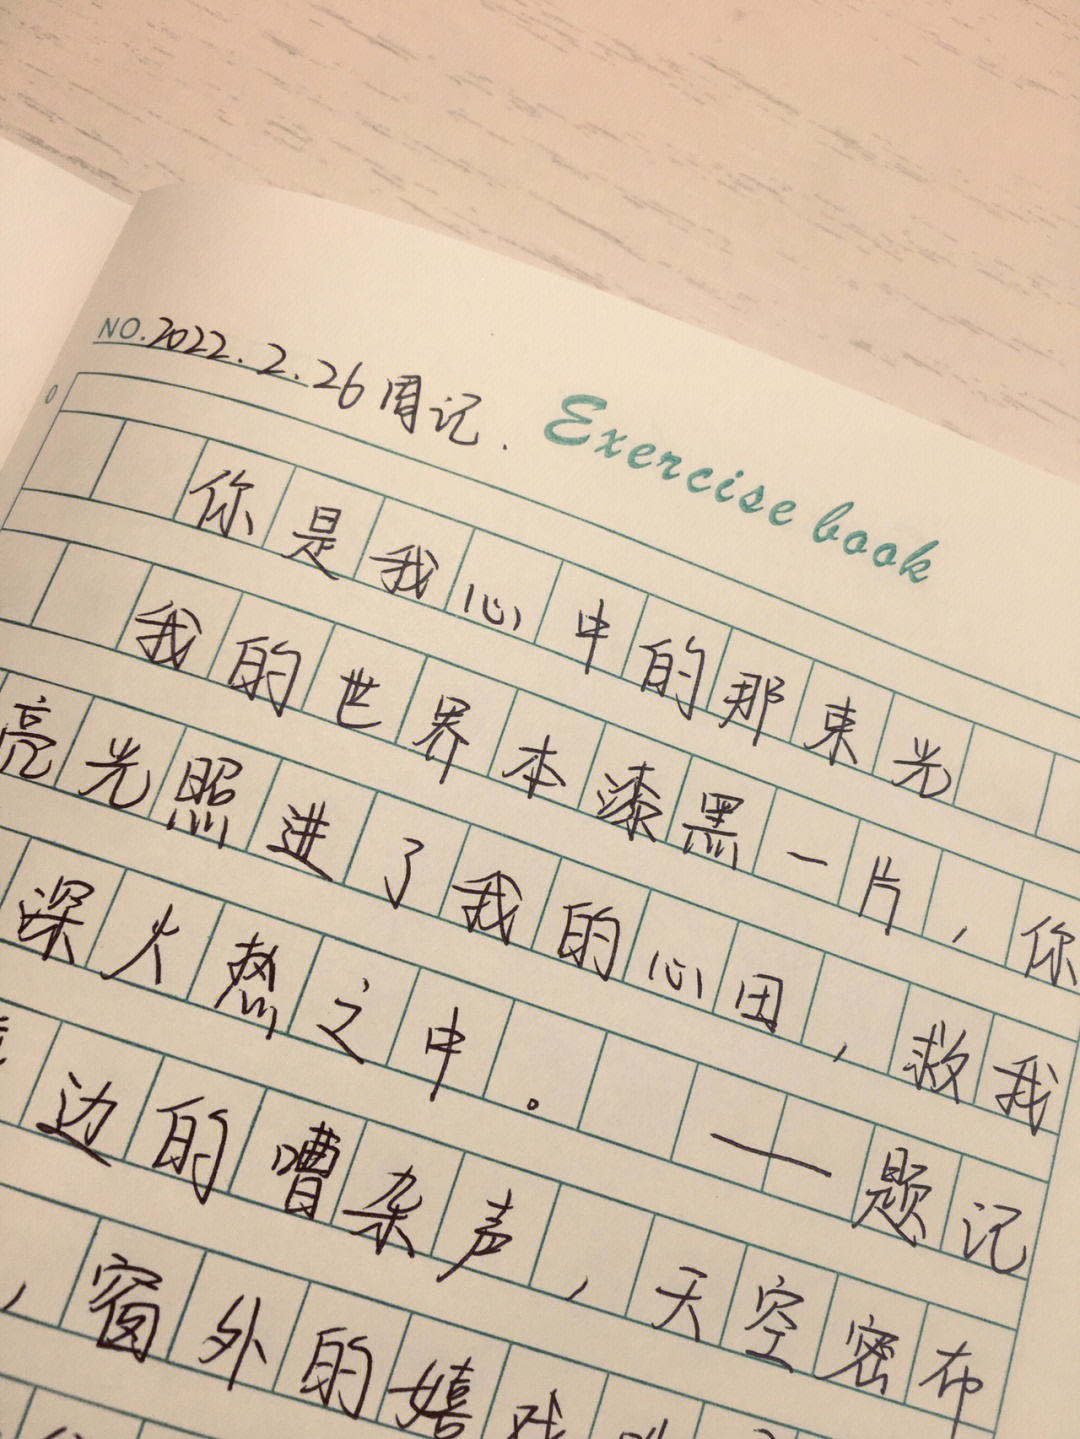 NO. 2022.2.26 周记.
Exercise book
你是我心中的那束光
我的世界本漆黑一片，你
亮光照进了我的心田，救我
深火热之中。——题记
边的嘈杂声，天空密布
，窗外的嬉戏